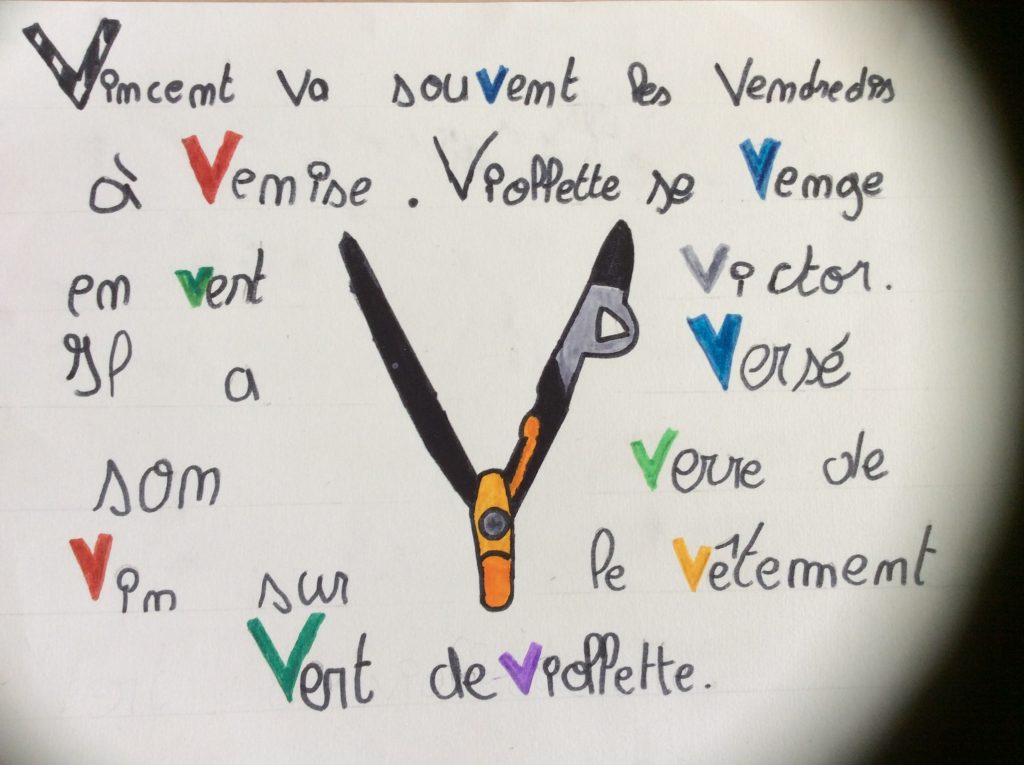 Vincent va souvent les Vendredis
à Venise . Viollette se Venge
en vert Victor.
Il a Versé
son verre de
vin sur le vêtement
Vert de viollette.